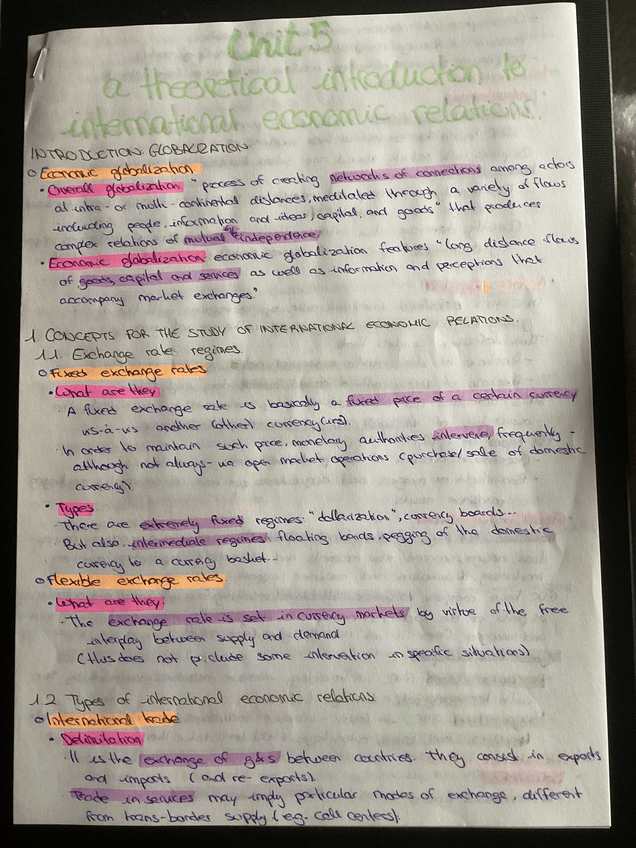 Unit 5
a theoretical introduction to
international economic relations.
INTRODUCTION: GLOBALIZATION
Economic globalization
• Overall globalization "process of creating networks of connections among actors
at intra- or multi-continental distances, mediated through a variety of flows
including people, information and ideas, capital, and goods" that produces
complex relations of mutual independence
• Economic globalization economic globalization features "long distance flows
of goods, capital and services as well as information and perceptions that
accompany market exchanges"
1. CONCEPTS FOR THE STUDY OF INTERNATIONAL ECONOMIC RELATIONS.
1.1. Exchange rate regimes
Fixed exchange rates
• What are they
A fixed exchange rate is basically a fixed price of a certain currency
vis-à-vis another (other) currency(ies).
In order to maintain such price, monetary authorities intervene, frequently -
although not always - via open market operations (purchase/sale of domestic
currency).
• Types
There are extremely fixed regimes: "dollarization", currency boards...
But also intermediate regimes: floating bands, pegging of the domestic
currency to a currency basket...
Flexible exchange rates
• What are they
· The exchange rate is set in currency markets by virtue of the free
interplay between supply and demand
(this does not preclude some intervention in specific situations)
1.2 Types of international economic relations
International trade
• Delimitation
· It is the exchange of g&s between countries. They consist in exports
and imports (and re-exports).
Trade in services may imply particular modes of exchange, different
from trans-border supply (eg. call centers).